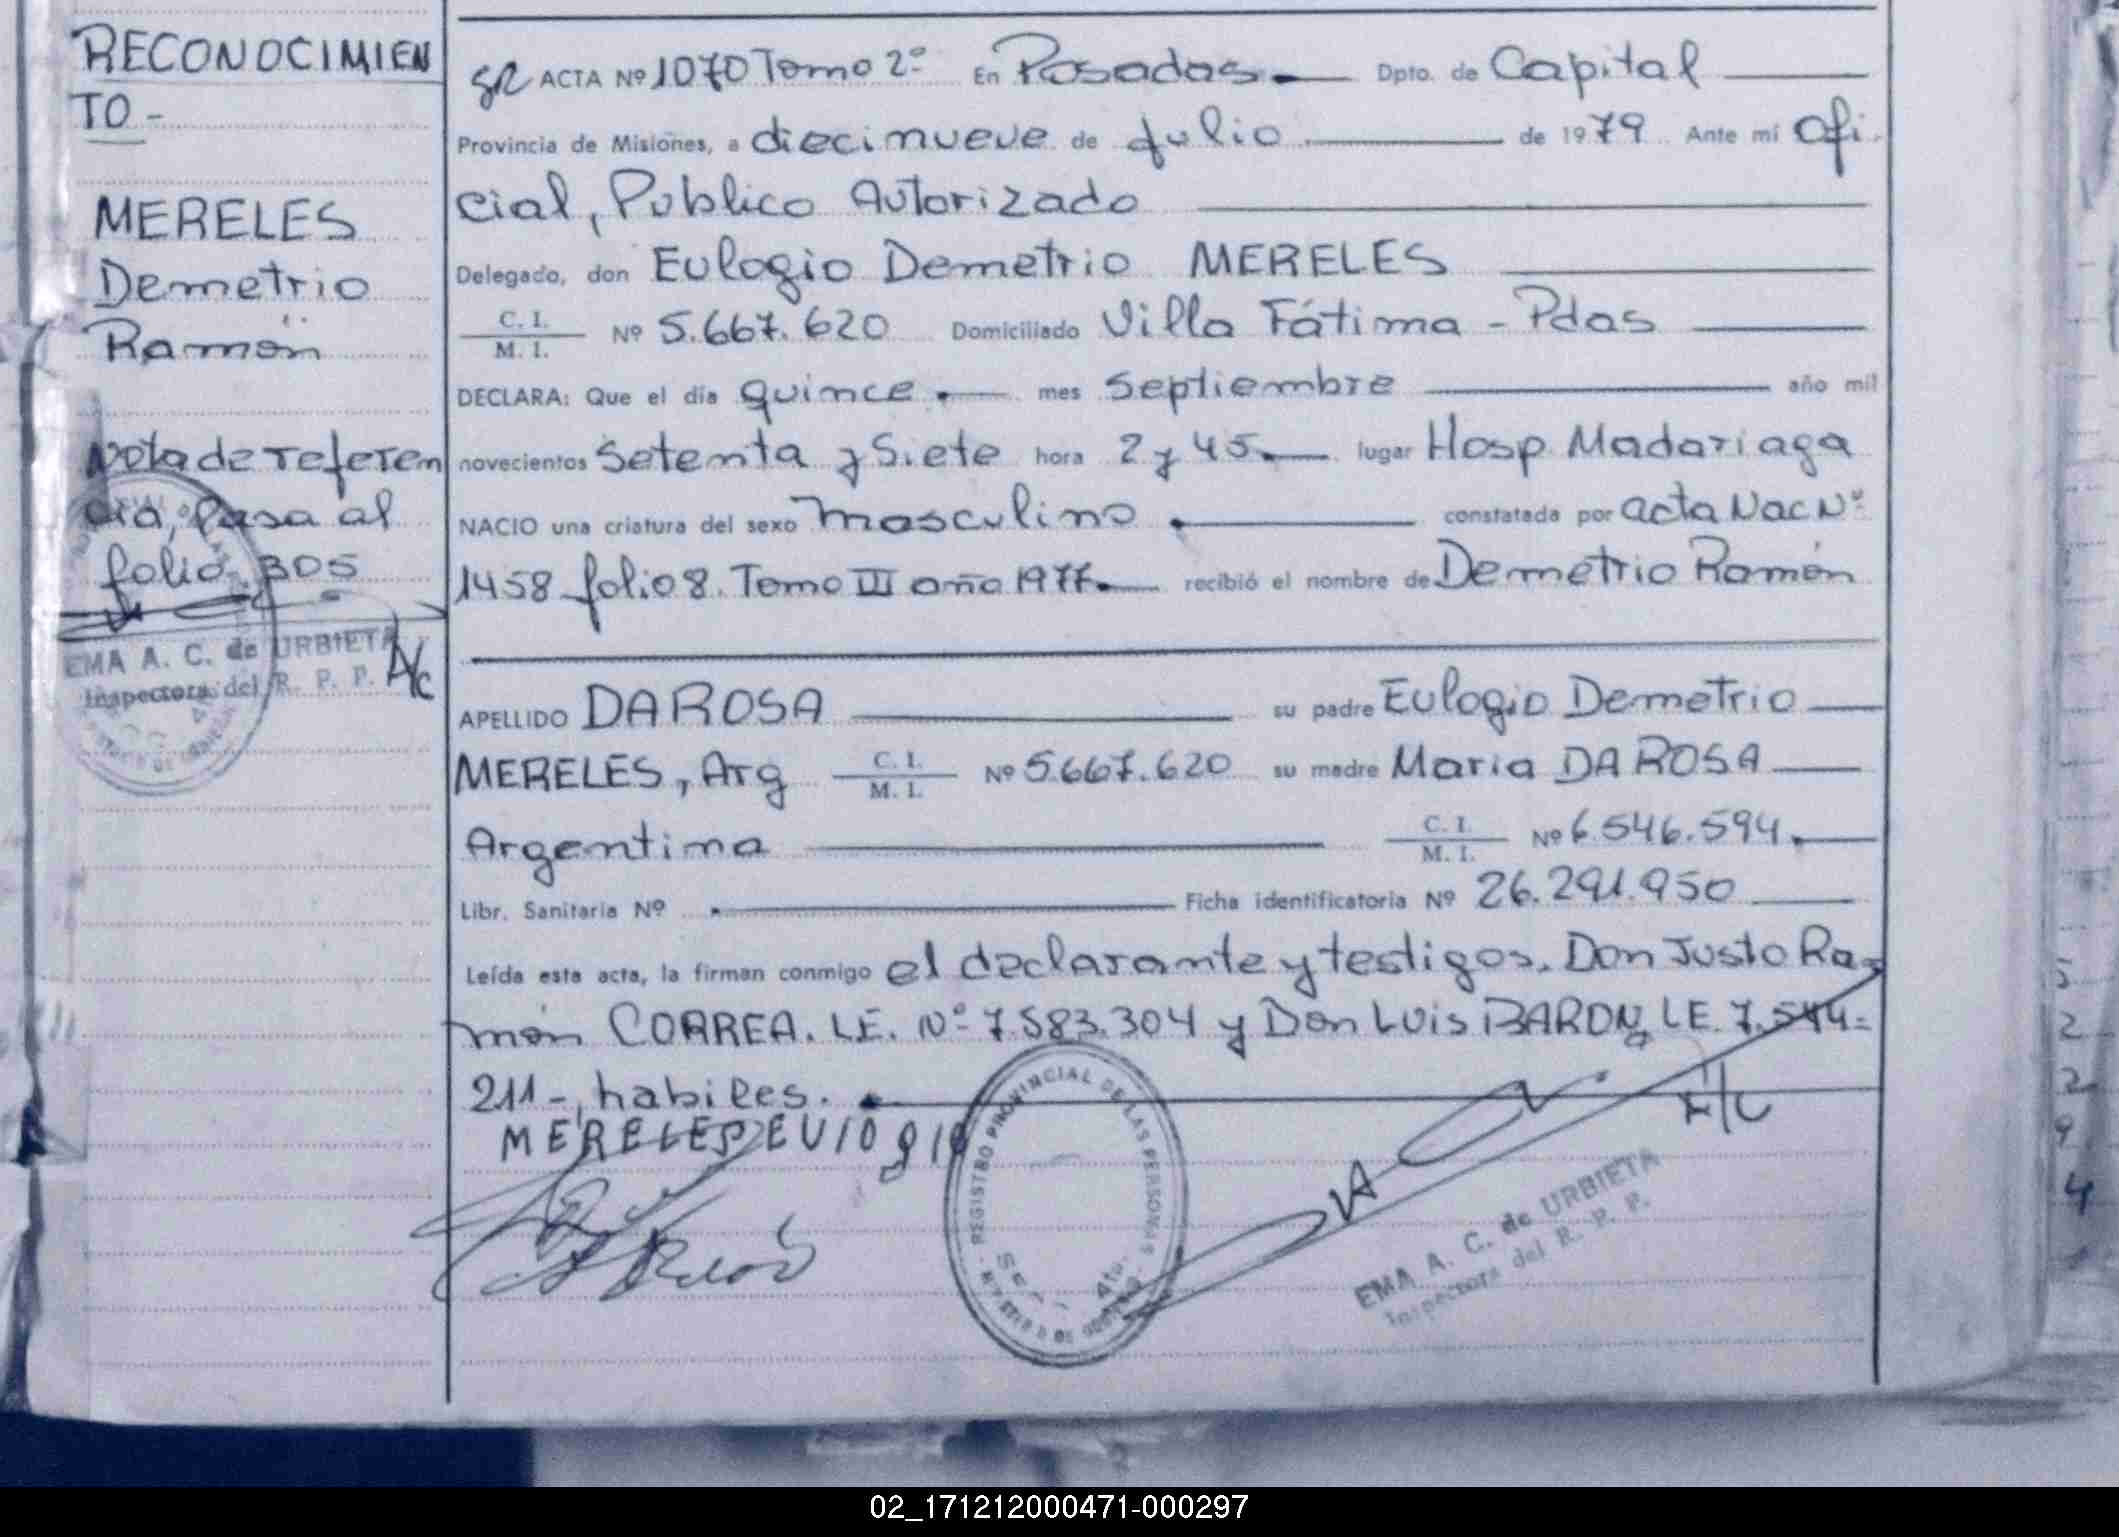 RECONOCIMIEN
TO -
MERELES
Demetrio
Ramón
Nota de referen
cia, Pasa al
folio 305
EMA A. C. de URBIETA
Inspectora del R. P. P.
A/c
ACTA Nº 1070 Tomo 2º En Posadas Dpto. de Capital
Provincia de Misiones, a diecinueve de Julio de 1979 Ante mí Ofi
cial, Publico Autorizado
Delegado, don Eulogio Demetrio MERELES
C. I. / M. I. Nº 5.667.620 Domiciliado Villa Fátima - Pdas
DECLARA: Que el día quince mes Septiembre año mil
novecientos Setenta y Siete hora 2 y 45 lugar Hosp. Madariaga
NACIO una criatura del sexo masculino constatada por acta Nac Nº
1458 folio 8. Tomo III año 1977 recibió el nombre de Demetrio Ramón
APELLIDO DA ROSA su padre Eulogio Demetrio
MERELES, Arg C. I. / M. I. Nº 5.667.620 su madre Maria DA ROSA
Argentina C. I. / M. I. Nº 6.546.594
Libr. Sanitaria Nº Ficha identificatoria Nº 26.291.950
Leída esta acta, la firman conmigo el declarante y testigos. Don Justo Ra-
món CORREA. LE. Nº 7.583.304 y Don Luis BARON, LE. 7.544-
211-, habiles.
MERELES EUlogio
REGISTRO PROVINCIAL DE LAS PERSONAS
EMA A. C. de URBIETA
Inspectora del R. P. P.
5
2
2
9
4
02_171212000471-000297